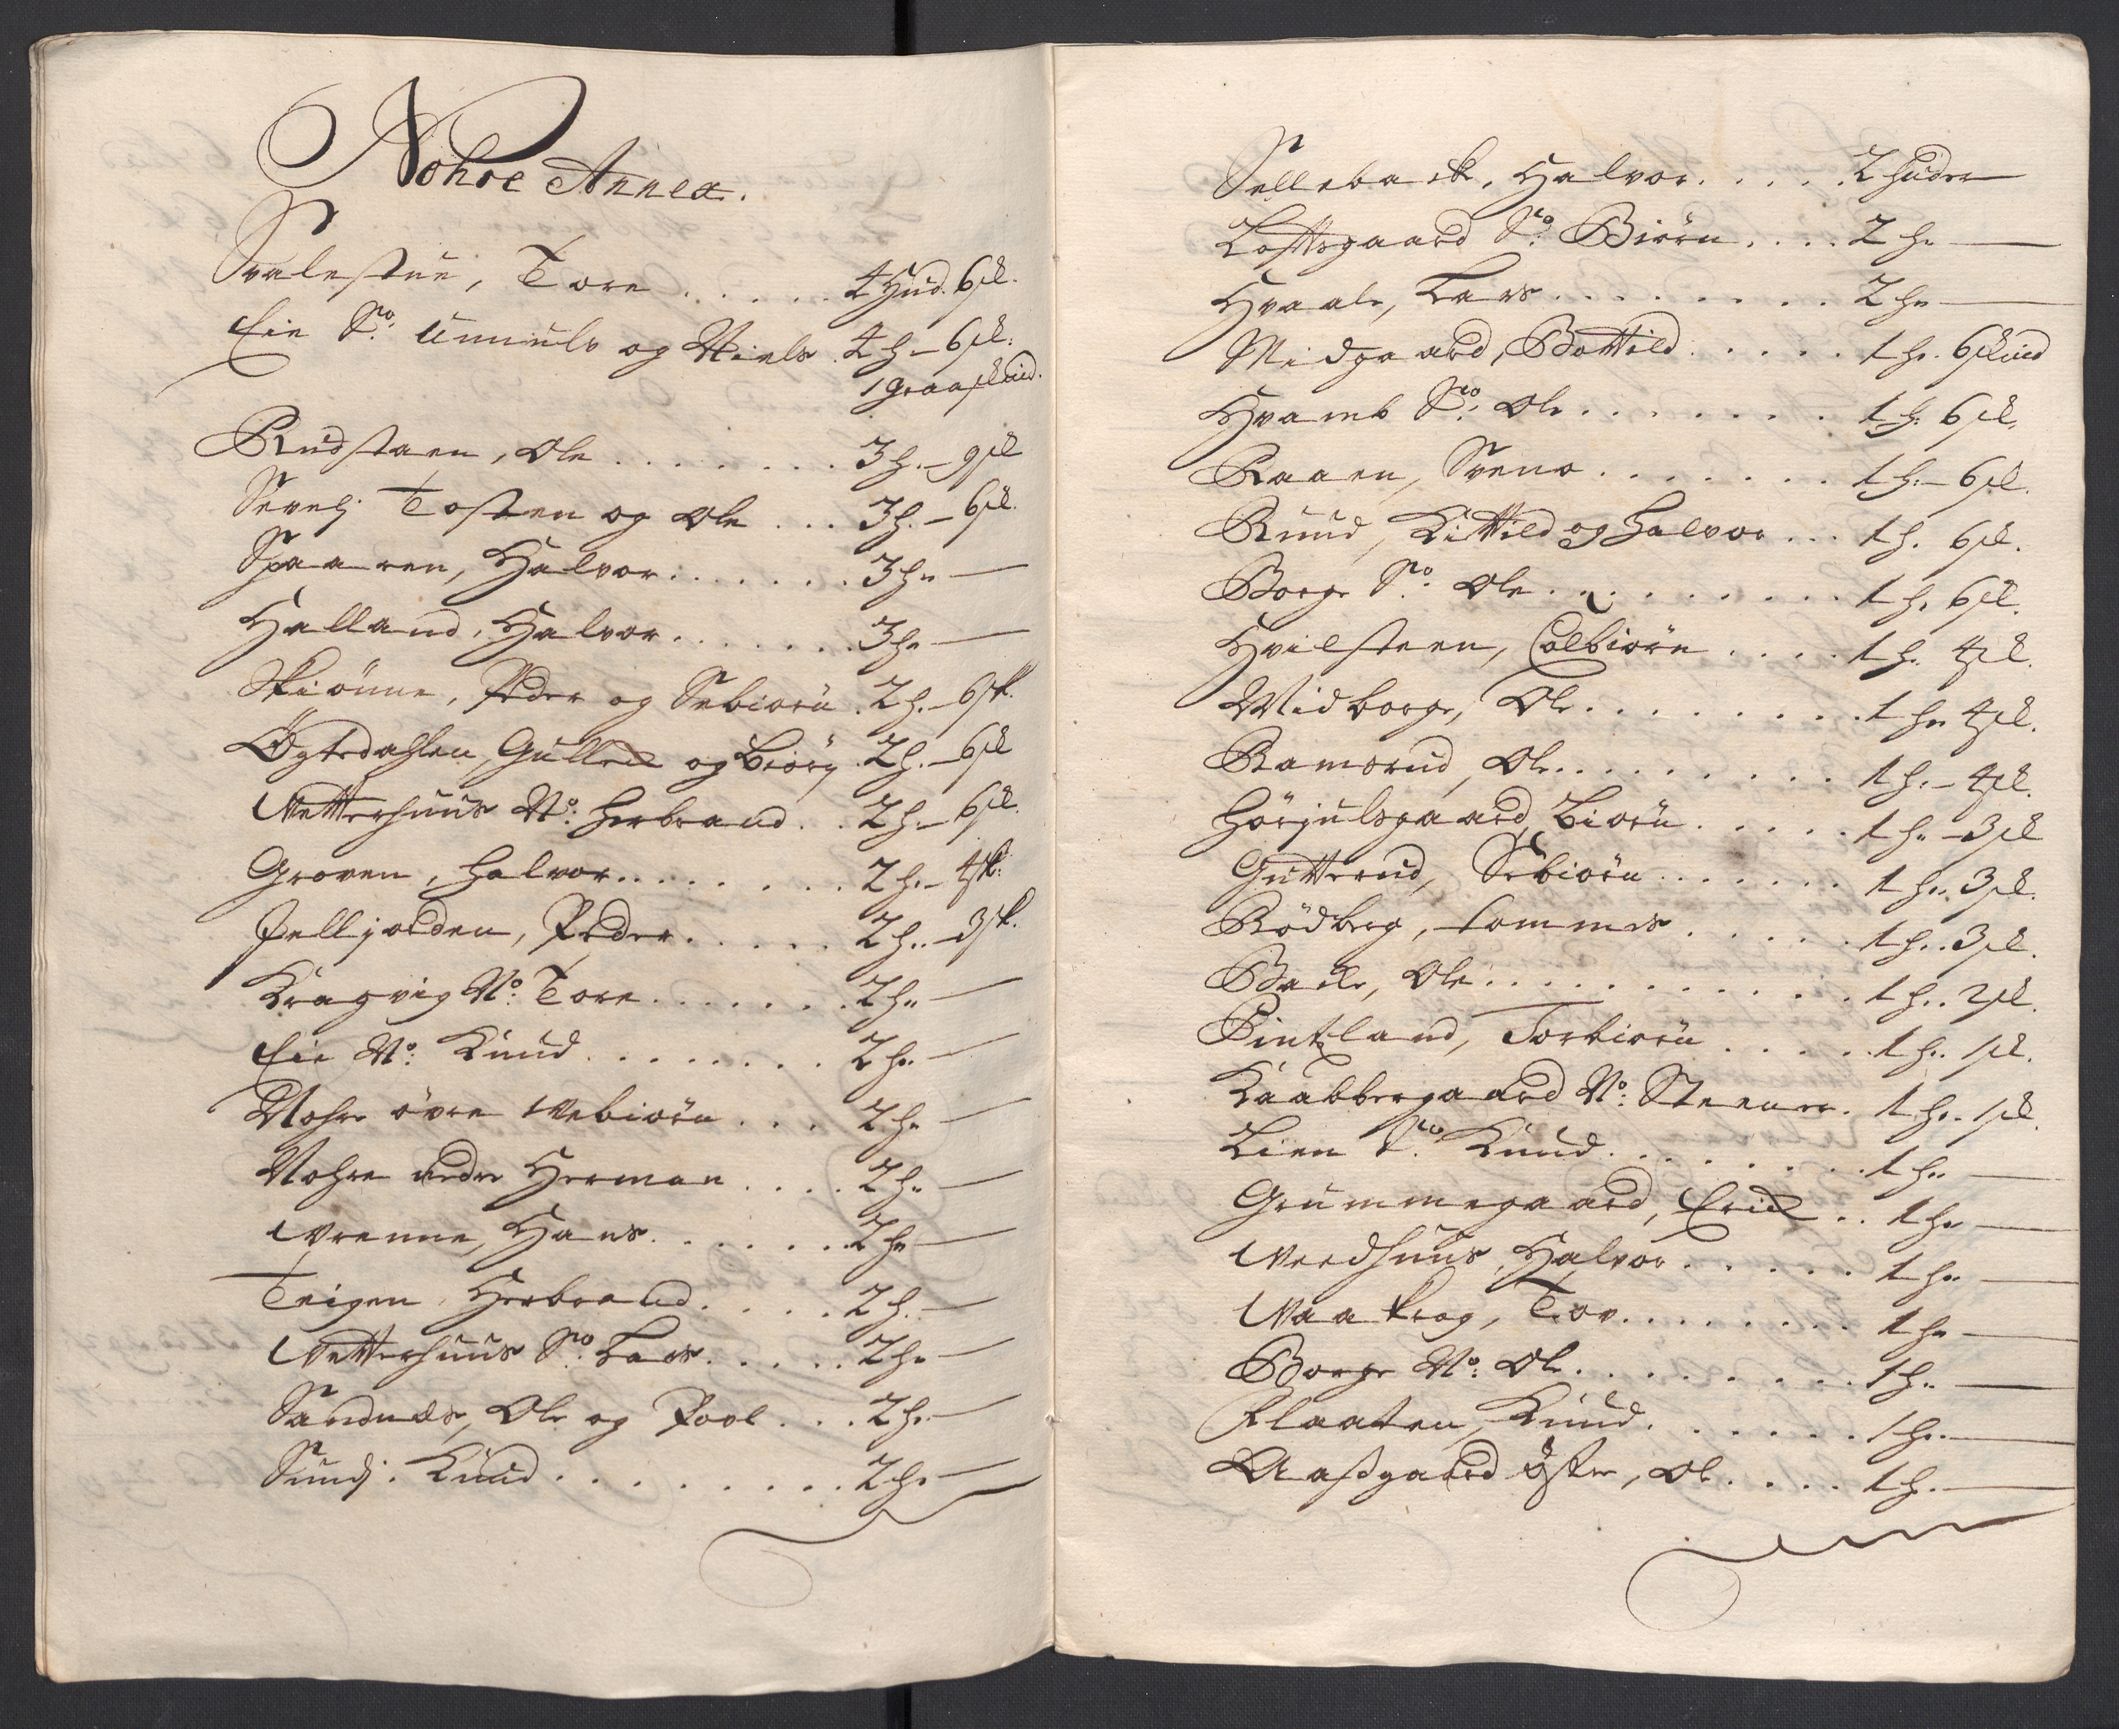 Nohre Annex.
Svalestue, Tore . . . . . 4 Hud. 6 sk.
Eie Sº: Unnuls og Niels . 4 h - 6 sk.
1 graaskind.
Rudstaen, Ole . . . . . . . 3 h. - 9 sk
Sevelj Tosten og Ole . . . 3 h. - 6 sk.
Spaanen, Halvor . . . . . . . 3 h. —
Halland, Halvor . . . . . . . 3 h. —
Skiönne, Peder og Sebiörn . 2 h. - 6 sk.
Ögtedahlen, Gullek og Biörn . 2 h. - 6 sk
Vetterhuus Nº: Herbrand . . 2 h. - 6 sk.
Groven, Halvor . . . . . . . 2 h. - 4 sk.
Jelljorden, Peder . . . . . 2 h. - 3 sk.
Kragvig Nº: Tore . . . . . . . 2 h. —
Eie Nº: Knud . . . . . . . 2 h. —
Nohre övre Vebiörn . . . . 2 h. —
Nohre nedre Herman . . . . 2 h. —
Vrenne, Hans . . . . . . . 2 h. —
Teigen, Herbrand . . . . . 2 h. —
Vetterhuus Sº: Lars . . . . . 2 h. —
Sandnæs, Ole og Povl . . . 2 h. —
Sundj. Knud . . . . . . . . . 2 h. —
Sælleback, Halvor . . . . . 2 huder
Loftsgaard Sº: Biörn . . . . 2 h. —
Hvaale, Lars . . . . . . . . . 2 h. —
Midgaard, Bottild . . . . . 1 h. 6 skind
Hvamb Sº: Ole . . . . . . . 1 h. 6 sk.
Raaen, Svend . . . . . . . 1 h. - 6 sk.
Ruud, Kittild og Halvor . . . 1 h. 6 sk.
Borge Sº: Ole . . . . . . . . . 1 h. 6 sk.
Hvilsteen, Colbiörn . . . . 1 h. 4 sk.
Midborge, Ole . . . . . . . . 1 h. 4 sk.
Ramsrud, Ole . . . . . . . . . 1 h. - 4 sk.
Hörjulsgaard, Biörn . . . . . 1 h. - 3 sk
Gutterud, Sebiörn . . . . . . . 1 h. 3 sk.
Rödberg, Tommes . . . . . 1 h. 3 sk.
Backe, Ole . . . . . . . . . . . 1 h. 2 sk.
Pintzland, Torbiörn . . . . . 1 h. 1 sk.
Kaabbergaard Nº: Steener . 1 h. 1 sk.
Lien Sº: Knud . . . . . . . . 1 h. —
Grummegaard, Erick . . 1 h. —
Veedhuus, Halvor . . . . . 1 h. —
Vaakrog, Tov . . . . . . . . 1 h. —
Borge Nº: Ole . . . . . . . . . 1 h. —
Flaaten, Knud . . . . . . . 1 h. —
Aasgaard öster, Ole . . . . 1 h. —